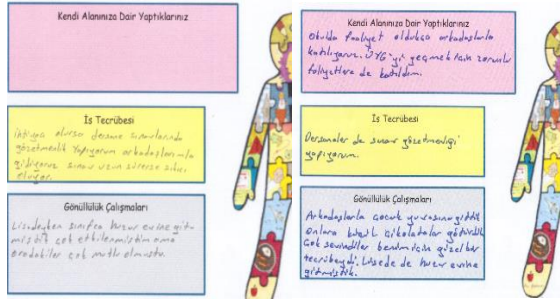 Kendi Alanınıza Dair Yaptıklarınız
İş Tecrübesi
ihtiyaç olursa dersane sınavlarında
gözetmenlik yapıyorum arkadaşlarımla
gidiyoruz sınav uzun sürerse sıkıcı
oluyor.
Gönüllülük Çalışmaları
Lisedeyken sınıfça huzur evine git
miştik çok etkilenmiştim ama
oradakiler çok mutlu olmuştu.
Kendi Alanınıza Dair Yaptıklarınız
Okulda faaliyet oldukça arkadaşlarla
katılıyoruz. ÜYG'yi geçmek için zorunlu
faliyetlere de katıldım.
İş Tecrübesi
Dersaneler de sınav gözetmenliği
yapıyorum.
Gönüllülük Çalışmaları
Arkadaşlarla çocuk yuvasına gittik
onlara çikolatalar götürdük
Çok sevindiler benim için güzel bir
tecrübeydi. Lisede de huzur evine
gitmiştik.